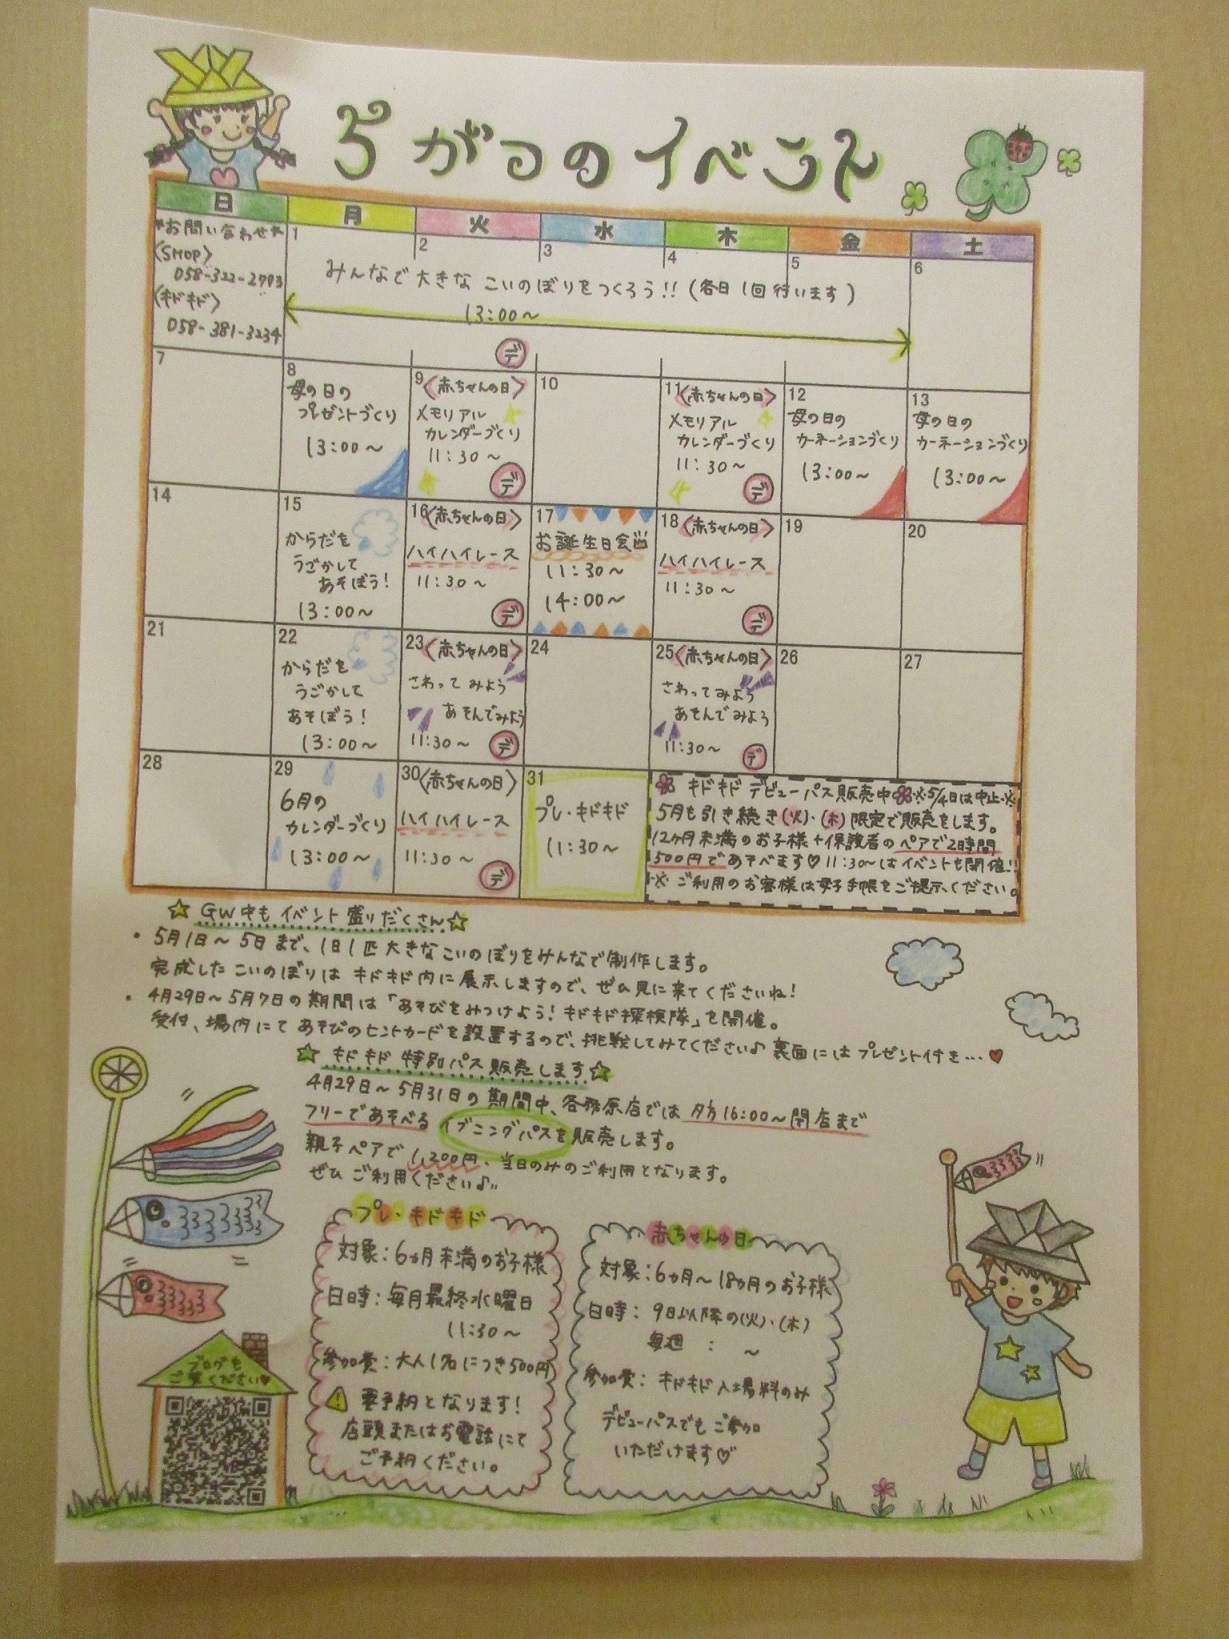 5がつのイベント
日 月 火 水 木 金 土
*お問い合わせ*
〈SHOP〉
058-322-2793
〈キドキド〉
058-381-3234
1 2 3 4 5 6
みんなで大きな こいのぼりをつくろう!! (各日1回行います)
13:00~
デ
7
8
母の日の
プレゼントづくり
13:00~
9〈赤ちゃんの日〉
メモリアル
カレンダーづくり
11:30~
デ
10
11〈赤ちゃんの日〉
メモリアル
カレンダーづくり
11:30~
デ
12
母の日の
カーネーションづくり
13:00~
13
母の日の
カーネーションづくり
13:00~
14
15
からだを
うごかして
あそぼう!
13:00~
16〈赤ちゃんの日〉
ハイハイレース
11:30~
デ
17
お誕生日会
11:30~
14:00~
18〈赤ちゃんの日〉
ハイハイレース
11:30~
デ
19
20
21
22
からだを
うごかして
あそぼう!
13:00~
23〈赤ちゃんの日〉
さわってみよう
あそんでみよう
11:30~
デ
24
25〈赤ちゃんの日〉
さわってみよう
あそんでみよう
11:30~
デ
26
27
28
29
6月の
カレンダーづくり
13:00~
30〈赤ちゃんの日〉
ハイハイレース
11:30~
デ
31
プレ・キドキド
11:30~
キドキド デビューパス販売中 ※5/4日は中止※
5月も引き続き(火)・(木)限定で販売をします。
12ヶ月未満のお子様+保護者のペアで2時間
500円であそべます♡ 11:30~はイベントも開催!!
※ ご利用のお客様は母子手帳をご提示ください。
☆GW中もイベント盛りだくさん☆
・5月1日~5日まで、1日1匹 大きなこいのぼりをみんなで制作します。
完成したこいのぼりは キドキド内に展示しますので、ぜひ見に来てくださいね!
・4月29日~5月7日の期間は「あそびをみつけよう!キドキド探検隊」を開催。
受付、場内にて あそびのヒントカードを設置するので、挑戦してみてください♪ 裏面にはプレゼント付き…♥
☆キドキド特別パス販売します☆
4月29日~5月31日の期間中、各務原店では 夕方16:00~閉店まで
フリーであそべる イブニングパスを販売します。
親子ペアで 1,200円・当日のみのご利用となります。
ぜひ ご利用ください♪
プレ・キドキド
対象:6ヵ月未満のお子様
日時:毎月最終水曜日
11:30~
参加費:大人1名につき500円
⚠ 要予約となります!
店頭またはお電話にて
ご予約ください。
赤ちゃんの日
対象:6ヵ月~18ヵ月のお子様
日時:9日以降の(火)・(木)
毎週 : ~
参加費:キドキド入場料のみ
デビューパスでもご参加
いただけます♡
ブログも
ご覧ください♥